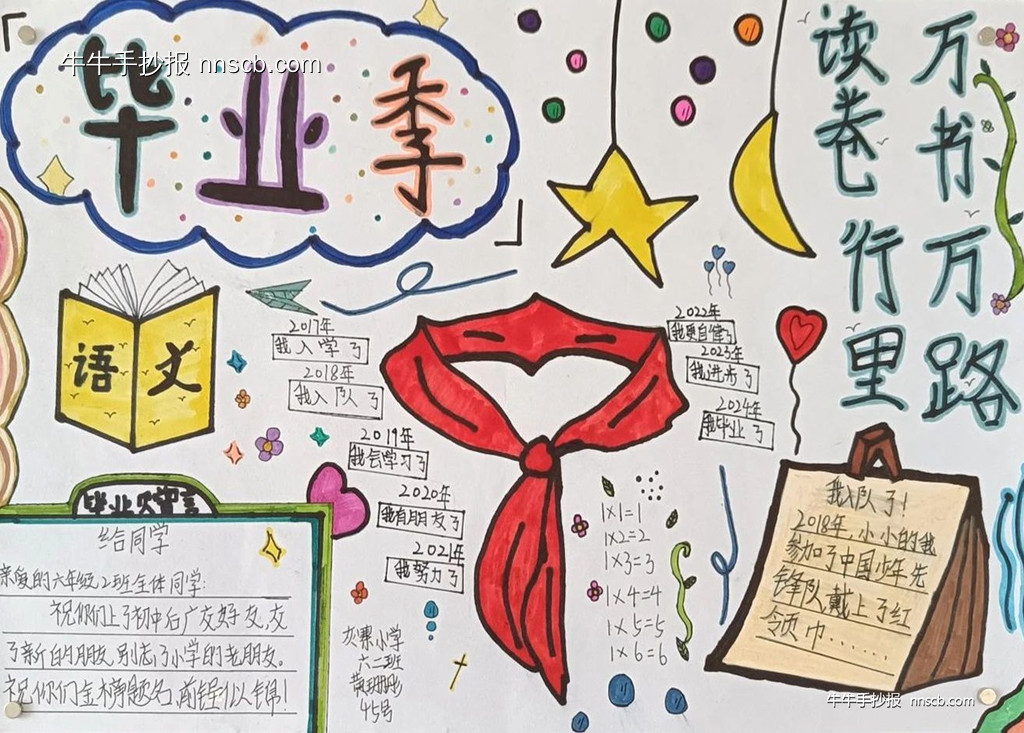 牛牛手抄报 nnscb.com
毕业季
读万
卷书
行万
里路
语文
2017年
我入学了
2018年
我入队了
2019年
我会学习了
2020年
我有朋友了
2021年
我努力了
2022年
我更自信了
2023年
我进步了
2024年
我毕业了
毕业
给同学
亲爱的六年级2班全体同学:
祝你们上了初中后广友好友,友
了新的朋友,别忘了小学的老朋友。
祝你们金榜题名,前程似锦!
小学
六二班
45号
1×1=1
1×2=2
1×3=3
1×4=4
1×5=5
1×6=6
我入队了!
2018年,小小的我
参加了中国少年先
锋队戴上了红
领巾......
牛牛手抄报 nnscb.com